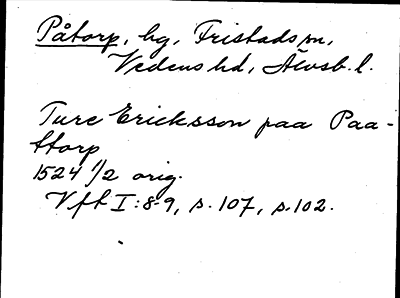 Påtorp, hg, Fristads sn,
Vedens hd, Älvsb. l.
Ture Ericksson paa Paa-
ttorp
1524 1/2 orig.
Vft I:8-9, s. 107, s. 102.